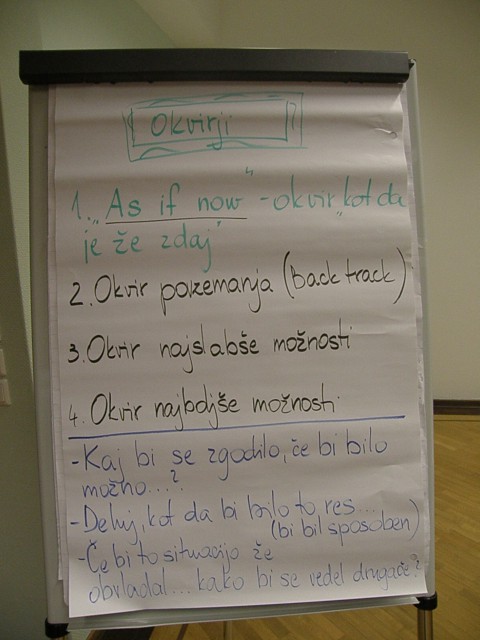 Okvirji
1. „As if now" - okvir „kot da
je že zdaj"
2. Okvir povzemanja (back track)
3. Okvir najslabše možnosti
4. Okvir najboljše možnosti
- Kaj bi se zgodilo, če bi bilo
možno...?
- Deluj, kot da bi bilo to res...
(bi bil sposoben)
- Če bi to situacijo že
obvladal... kako bi se vedel drugače?